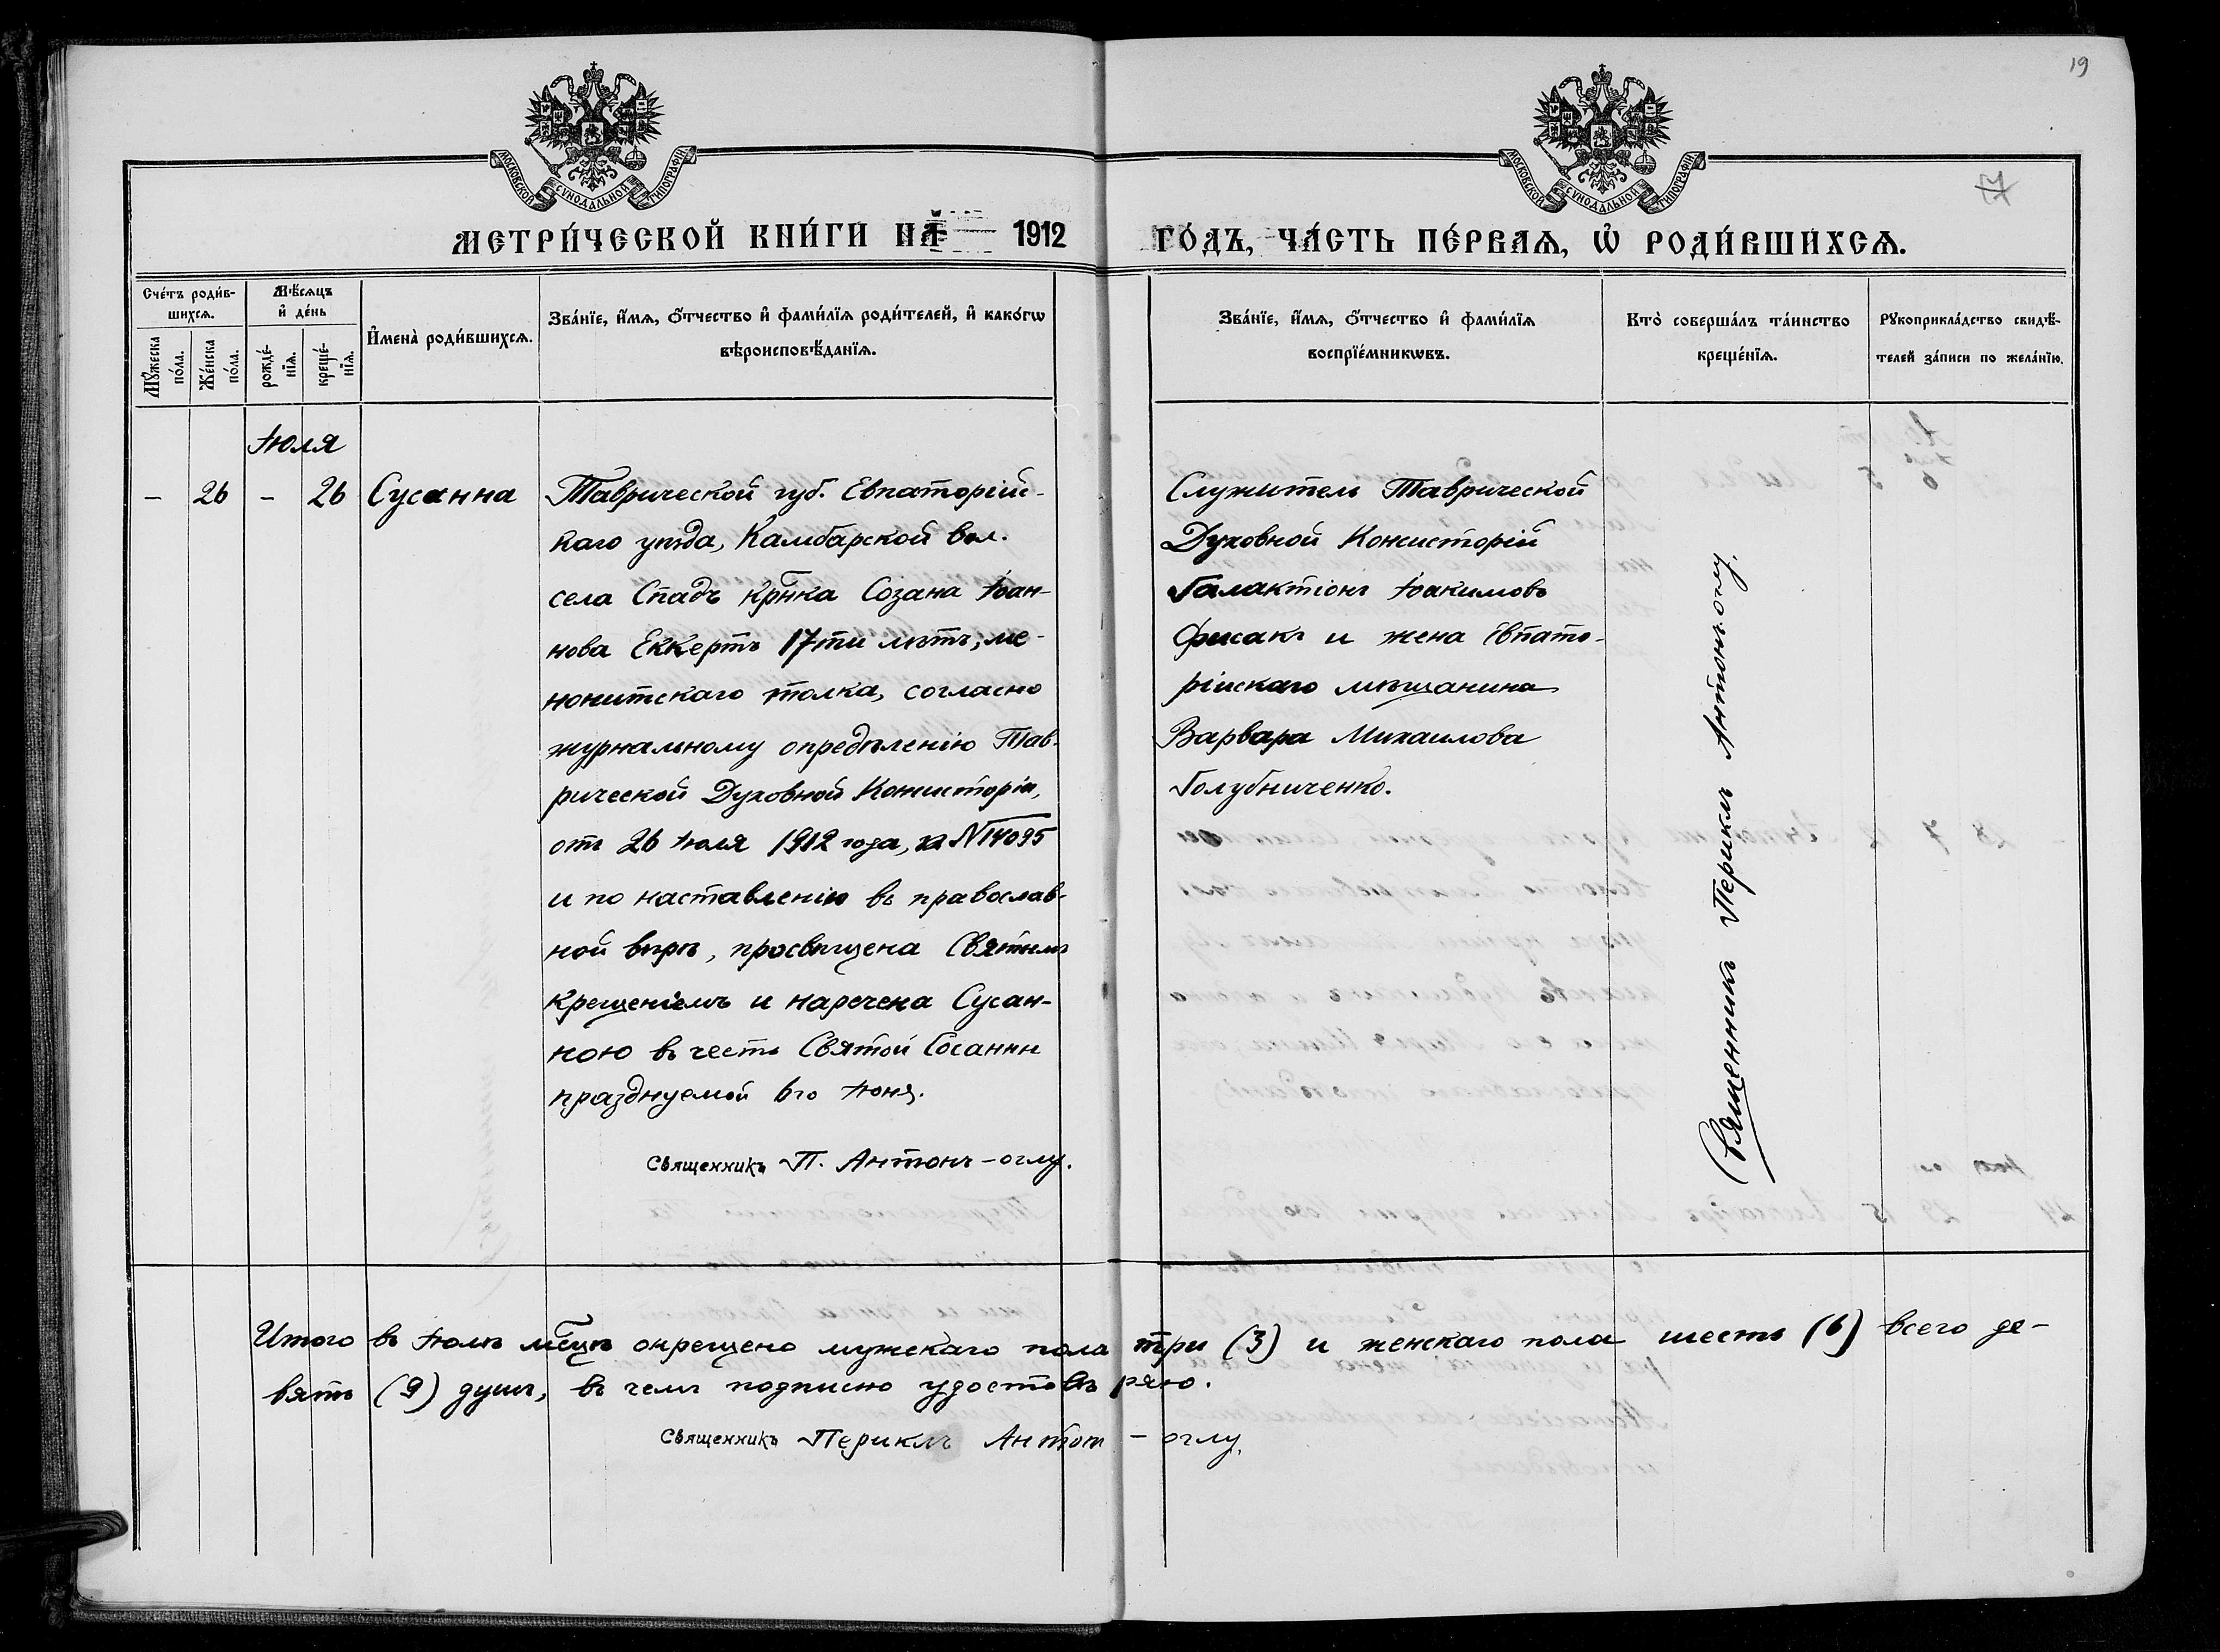 19
МОСКОВСКОЙ СУНОДАЛЬНОЙ ТИПОГРАФІИ
МОСКОВСКОЙ СУНОДАЛЬНОЙ ТИПОГРАФІИ
17
МЕТРИ́ЧЕСКОЙ КНИ́ГИ НА 1912 ГО́ДЪ, ЧА́СТЬ ПЕ́РВАѦ, Ѡ҆ РОДИ́ВШИХСѦ.
Сче́тъ роди́в-
шихсѧ.
Мꙋ́жеска по́ла.
Же́нска по́ла.
Мѣ́сѧцъ
и҆ де́нь
рожде́-
нїѧ.
креще́-
нїѧ.
И҆мена̀ роди́вшихсѧ.
Зва́нїе, и҆́мѧ, ѻ҆́тчество и҆ фами́лїѧ роди́телей, и҆ како́гѡ
вѣроисповѣ́данїѧ.
Зва́нїе, и҆́мѧ, ѻ҆́тчество и҆ фами́лїѧ
воспрїе́мникѡвъ.
Кто̀ соверша́лъ та́инство
креще́нїѧ.
Рꙋкоприкла́дство свидѣ́-
телей за́писи по жела́нїю.
Іюля
– 26 – 26 Сусанна
Таврической губ. Евпаторій-
каго уѣзда, Камбарской вол.
села Спадъ крн̃ка Созана Іоан-
нова Еккертъ 17ти лѣтъ, ме-
нонитскаго толка, согласно
журнальному опредѣленію Тав-
рической Духовной Консисторіи,
отъ 26 Іюля 1912 года, за N14095
и по наставленію въ православ-
ной вѣрѣ, просвѣщена Святымъ
крещеніемъ и наречена Сусан-
ною въ честь Святой Сосанны
празднуемой 6го Іюня.
Священникъ П. Антонъ-оглу.
Служитель Таврической
Духовной Консисторіи
Галактіонъ Іоакимовъ
Фисакъ и жена Евпато-
рійскаго мѣщанина
Варвара Михаилова
Голубниченко.
Священникъ Периклъ Антонъ-оглу.
Итого въ Іюлѣ мс̃цѣ окрещено мужскаго пола три (3) и женскаго пола шесть (6) всего де-
вять (9) душъ, въ чемъ подписью удостовѣряю.
Священникъ Периклъ Антон-оглу.